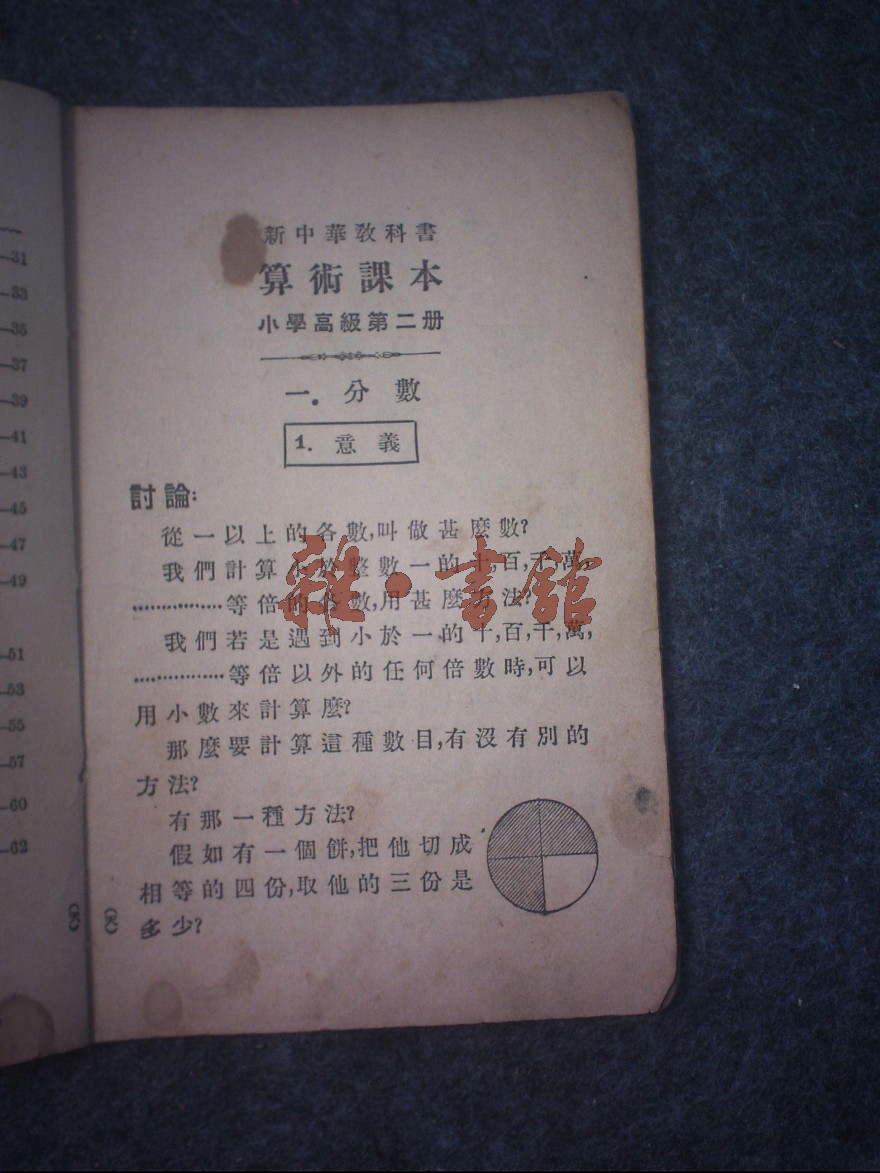 新中華教科書
算術課本
小學高級第二册
一.分數
1. 意義
討論:
從一以上的各數,叫做甚麼數?
我們計算小於整數一的十,百,千,萬,
……………等倍的各數,用甚麼方法?
我們若是遇到小於一的十,百,千,萬,
……………等倍以外的任何倍數時,可以
用小數來計算麼?
那麼要計算這種數目,有沒有別的
方法?
有那一種方法?
假如有一個餅,把他切成
相等的四份,取他的三份是
多少?
雅·書館
—31
—33
—35
—37
—39
—41
—43
—45
—47
—49
—51
—53
—55
—57
—60
—62